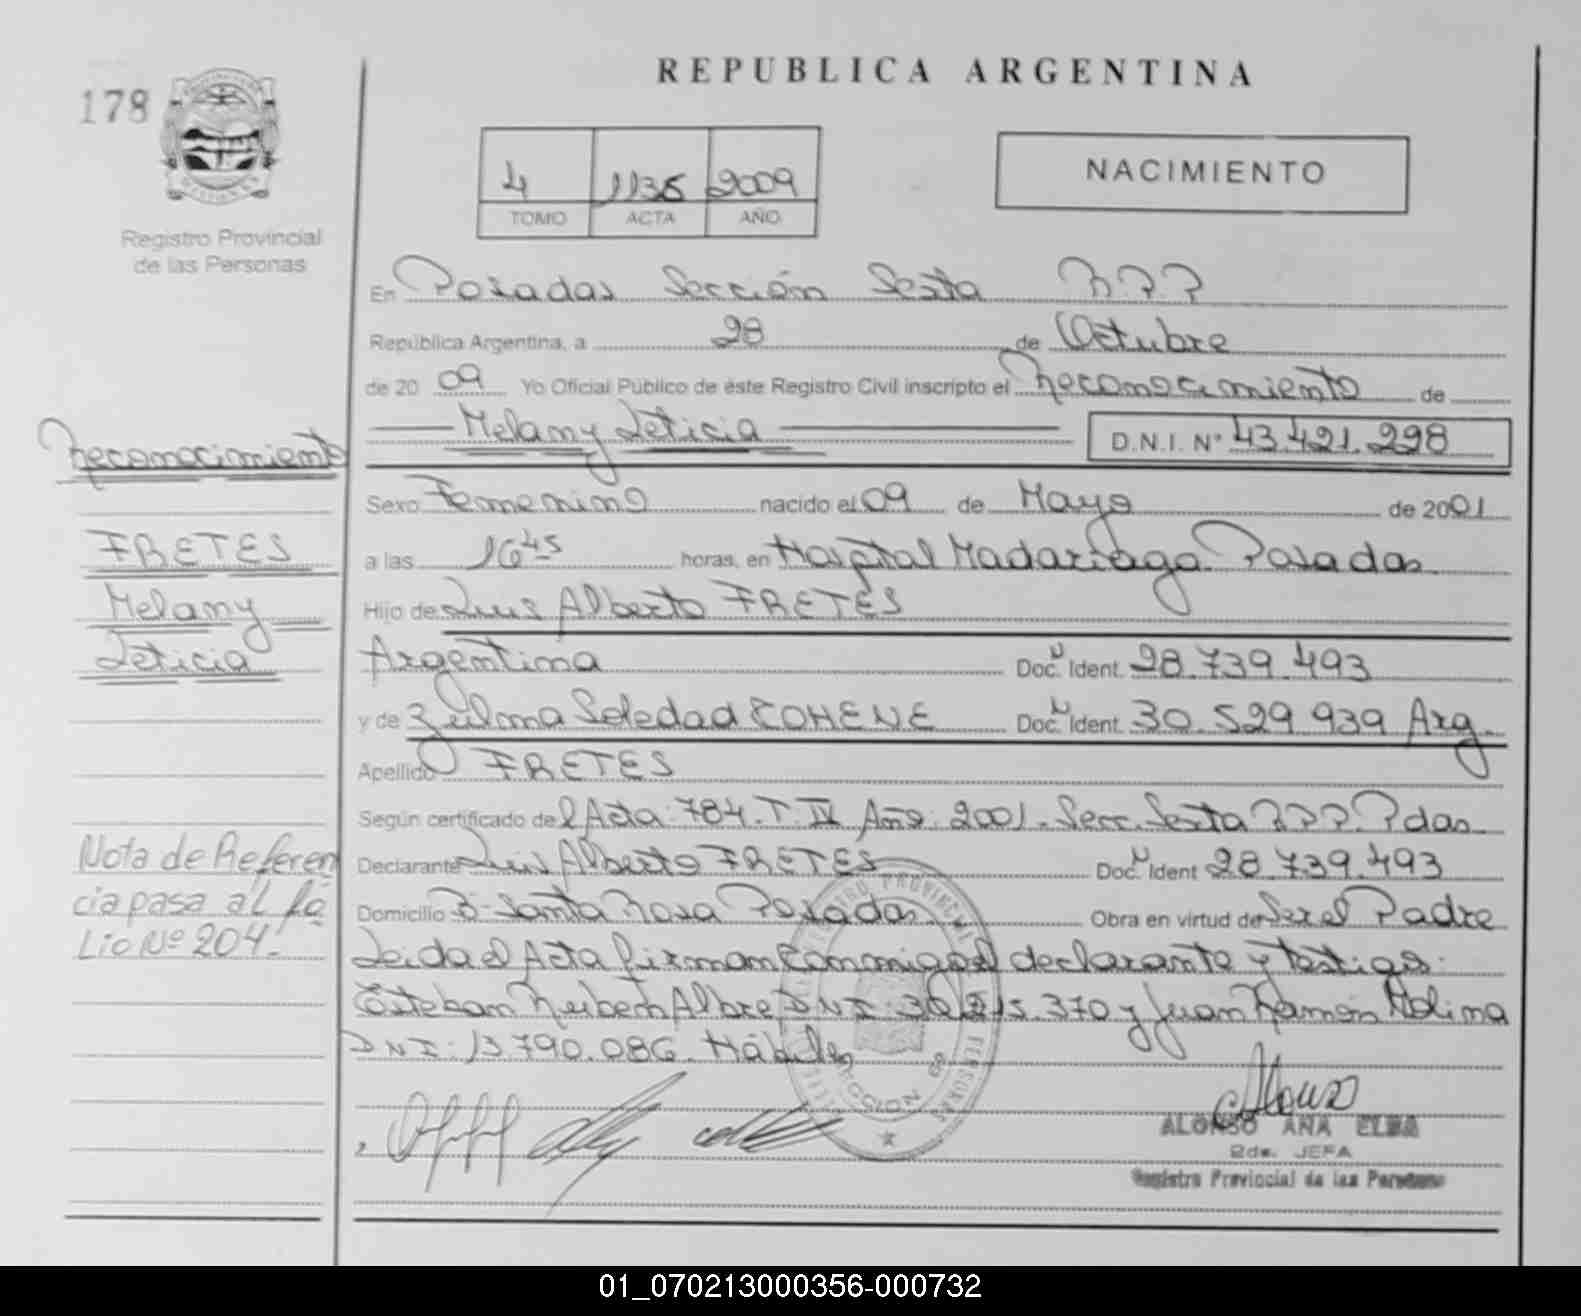 REPUBLICA ARGENTINA
178
4 1135 2009
TOMO ACTA AÑO
NACIMIENTO
Registro Provincial
de las Personas
En Posadas Sección Sexta R.P.P
República Argentina, a 28 de Octubre
de 2009 Yo Oficial Público de éste Registro Civil inscripto el Reconocimiento de
Melany Leticia D.N.I. N° 43.421.298
Reconocimiento
Sexo Femenino nacido el 09 de Mayo de 2001
FRETES
a las 16 45 horas, en Hospital Madariaga Posadas
Melany
Hijo de Luis Alberto FRETES
Leticia
Argentina Doc. Ident. 28.739.493
y de Zulma Soledad COHENE Doc. Ident. 30.529.939 Arg.
Apellido FRETES
Según certificado del Acta: 784. T. IV Año: 2001. Secc. Sexta R.P.P. Pdas.
Nota de Referen
cia pasa al fo
lio Nº 204.
Declarante Luis Alberto FRETES Doc. Ident 28.739.493
Domicilio Bº Santa Rosa Posadas Obra en virtud de Ser el Padre
Leida el Acta firman conmigo el declarante y testigos:
Esteban Albre DNI: 36.215.370 y Juan Ramón Molina
DNI: 13.790.086. Hábiles
ALONSO ANA ELBA
2da. JEFA
Registro Provincial de las Personas
01_070213000356-000732